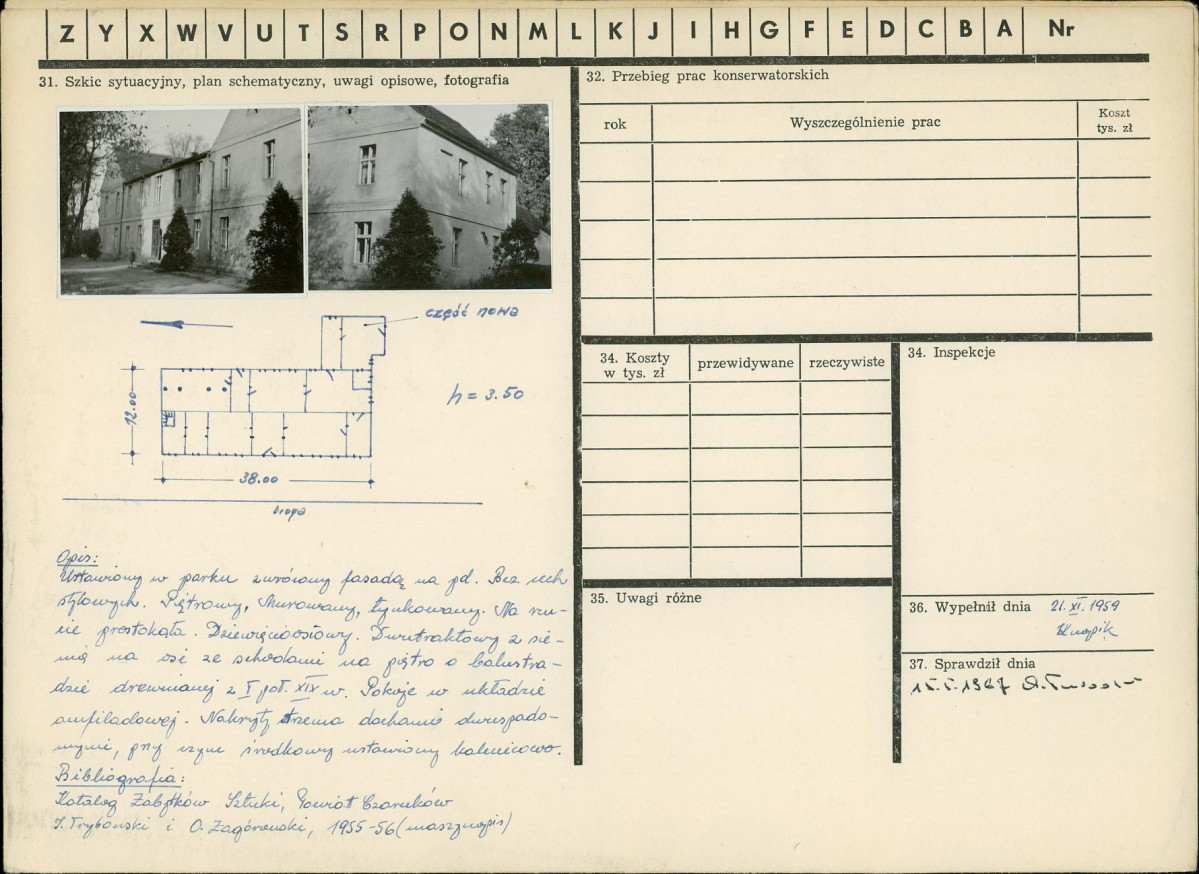 Z Y X W V U T S R P O N M L K J I H G F E D C B A Nr
31. Szkic sytuacyjny, plan schematyczny, uwagi opisowe, fotografia
część nowa
12.00
h = 3.50
38.00
Droga
Opis:
Ustawiony w parku zwrócony fasadą na pd. Bez cech
stylowych. Piętrowy, murowany, tynkowany. Na rzu-
cie prostokąta. Dziewięcioosiowy. Dwutraktowy z sie-
nią na osi ze schodami na piętro o balustra-
dzie drewnianej z I poł. XIX w. Pokoje w układzie
amfiladowej. Nakryty trzema dachami dwuspado-
wymi, przy czym środkowy ustawiony kalenicowo.
Bibliografia:
Katalog Zabytków Sztuki, Powiat Czarnków
i O. Zagórowski, 1955-56 (maszynopis)
32. Przebieg prac konserwatorskich
rok
Wyszczególnienie prac
Koszt
tys. zł
34. Koszty
w tys. zł
przewidywane
rzeczywiste
34. Inspekcje
35. Uwagi różne
36. Wypełnił dnia 21. XI. 1959
37. Sprawdził dnia